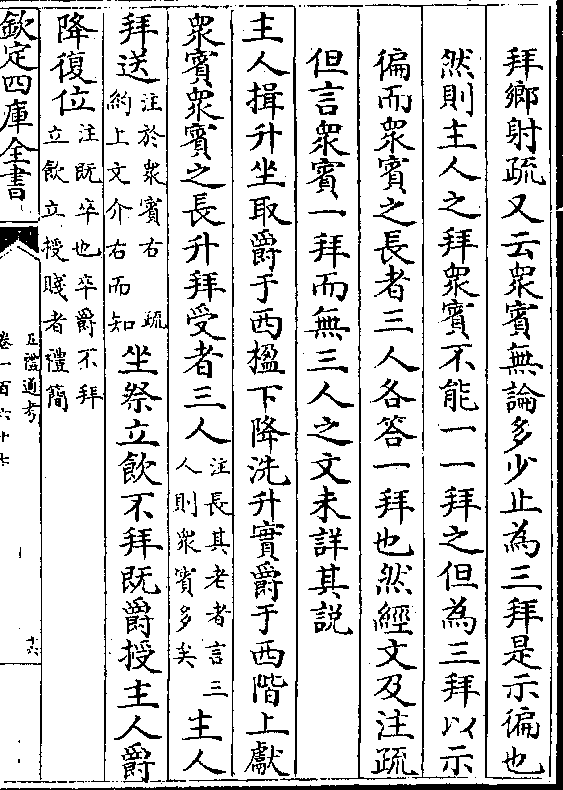 拜鄉射疏又云衆賓無論多少止為三拜是示徧也
然則主人之拜衆賓不能一一拜之但為三拜以示
徧而衆賓之長者三人各答一拜也然經文及注疏
但言衆賓一拜而無三人之文未詳其説
主人揖升坐取爵于西楹下降洗升實爵于西階上獻
衆賓衆賓之長升拜受者三人注長其老者言三人則衆賓多矣主人
拜送注於衆賓右 疏約上文介右而知坐祭立飲不拜既爵授主人爵
降復位注既卒也卒爵不拜立飲立授賤者禮簡
欽定四庫全書
五禮通考
卷一百六十七
十六